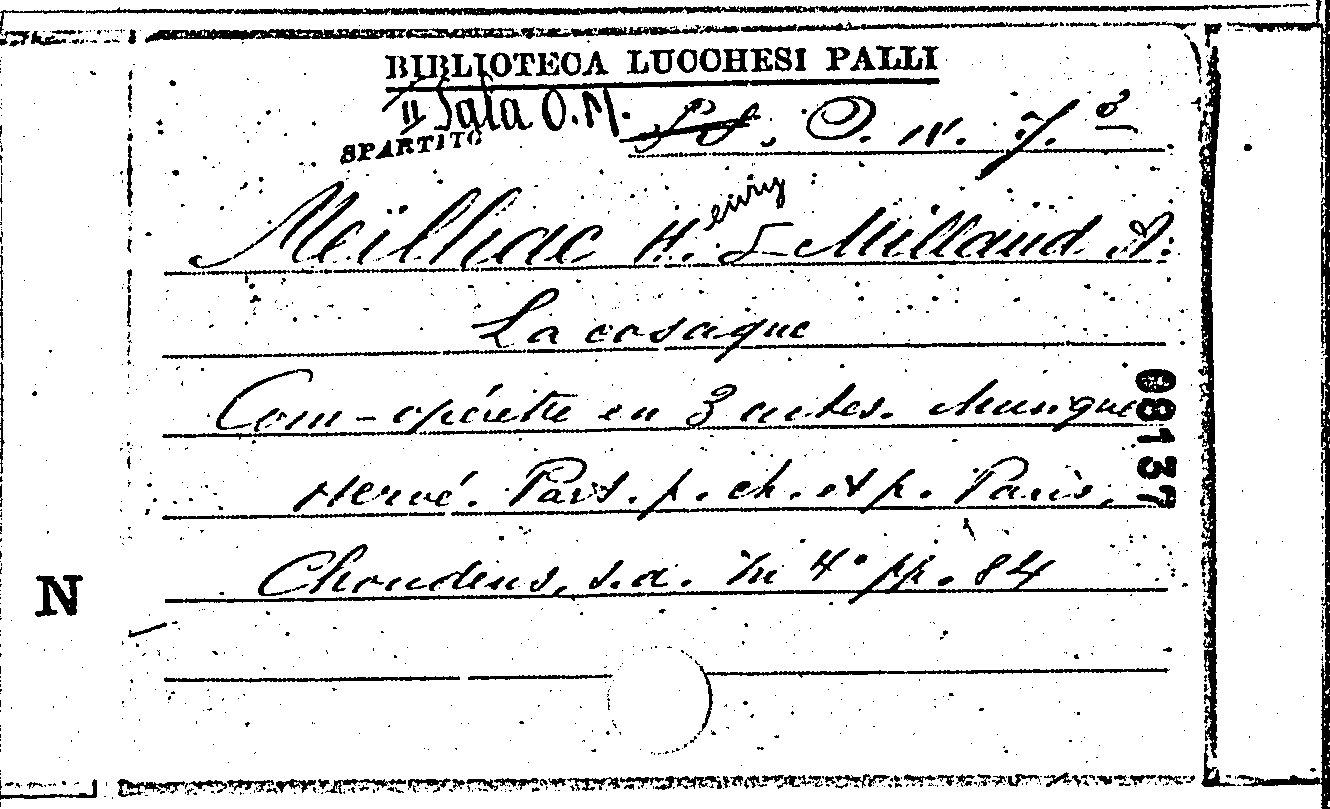 BIBLIOTECA LUCCHESI PALLI
II Sala O.M.
SPARTITO
O. IV. 7.
Meilhac H.enry & Millaud A.
La cosaque
Com-opérette en 3 actes. Musique
Hervé. Part. p. ch. et p. Paris,
Choudens, s.a. In 4° pp. 84
08137
N